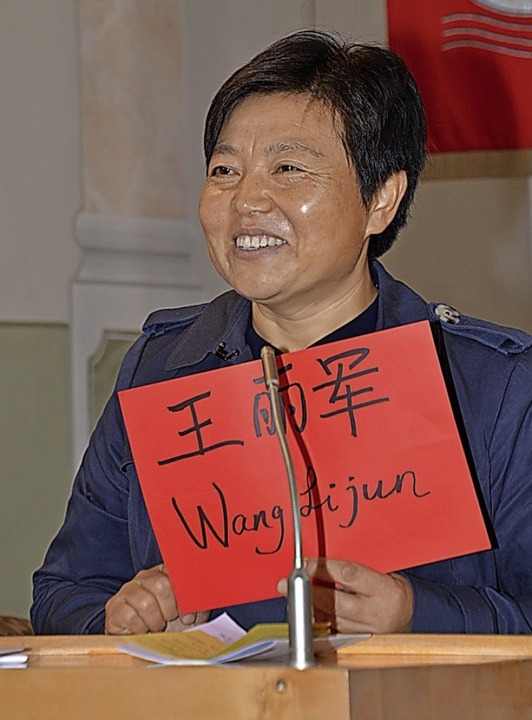 王丽军
Wang Lijun